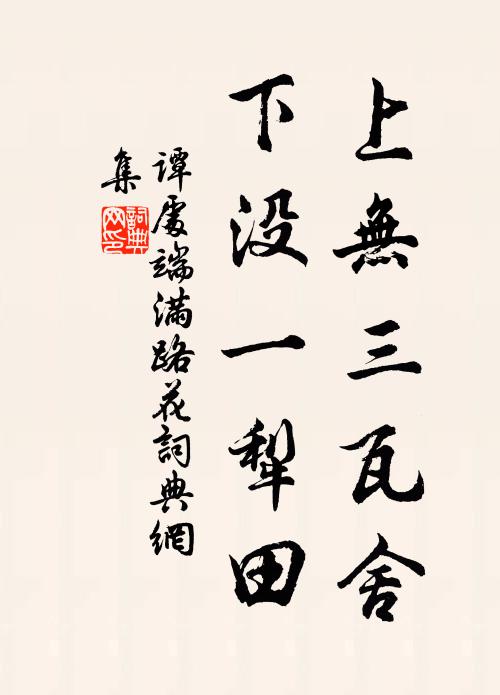 上無三瓦舍
下没一犁田
譚處端滿路花詞典網
集
詞典网印